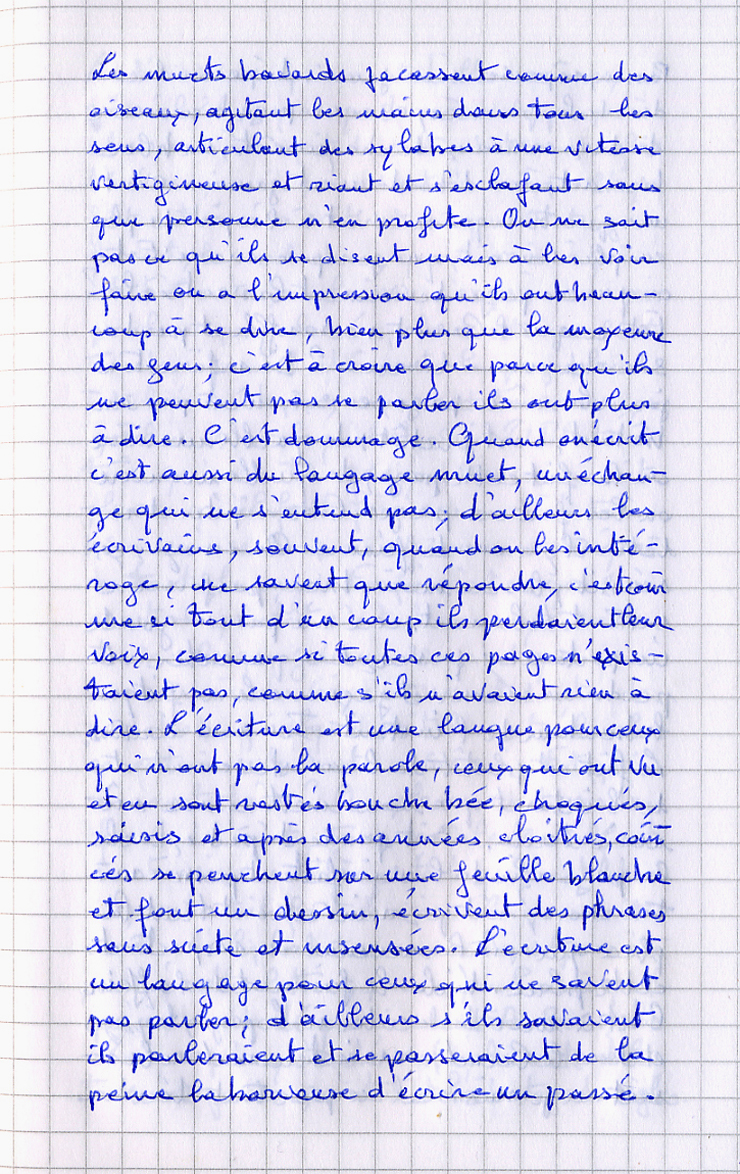 Les muets bavards jacassent comme des
oiseaux, agitant les mains dans tous les
sens, articulant des sylabes à une vitesse
vertigineuse et riant et s'esclafant sans
que personne n'en profite. On ne sait
pas ce qu'ils se disent mais à les voir
faire on a l'impression qu'ils ont beau-
coup à se dire, bien plus que la moyenne
des gens; c'est à croire que parce qu'ils
ne peuvent pas se parler ils ont plus
à dire. C'est dommage. Quand on écrit
c'est aussi du langage muet, un échan-
ge qui ne s'entend pas; d'ailleurs les
écrivains, souvent, quand on les inté-
roge, ne savent que répondre, c'est com
me si tout d'un coup ils perdaient leur
voix, comme si toutes ces pages n'exis-
taient pas, comme s'ils n'avaient rien à
dire. L'écriture est une langue pour ceux
qui n'ont pas la parole, ceux qui ont vu
et en sont restés bouche bée, choqués,
saisis et après des années cloîtrés, coin
cés se penchent sur une feuille blanche
et font un dessin, écrivent des phrases
sans suite et insensées. L'écriture est
un langage pour ceux qui ne savent
pas parler; d'ailleurs s'ils savaient
ils parleraient et se passeraient de la
peine laborieuse d'écrire un passé.